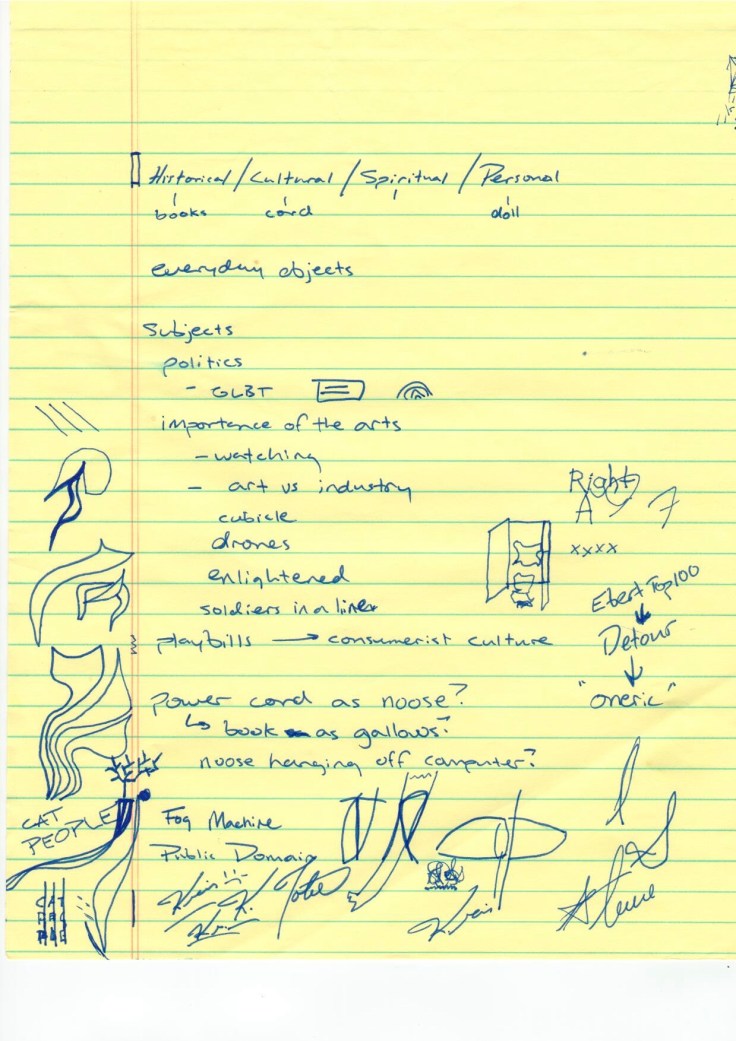 Historical / Cultural / Spiritual / Personal
books cord doll
everyday objects
Subjects
politics
- GLBT
importance of the arts
- watching
- art vs industry
cubicle
drones
enlightened
soldiers in a line
playbills → consumerist culture
power cord as noose?
↳ book as gallows?
noose hanging off computer?
Fog Machine
Public Domain
Right
A 7
xxxx
Ebert Top 100
↓
Detour
↓
"oneric"
CAT
PEOPLE
CAT
Kris
K.
Kris
Steve